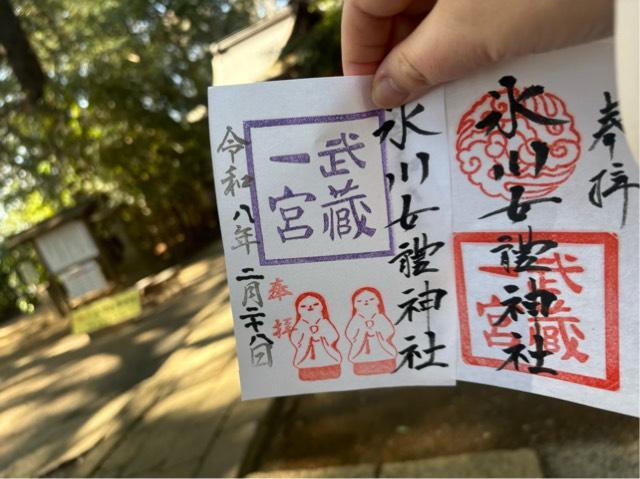 奉拝
氷川女體神社
武蔵
一宮
氷川女體神社
武蔵
一宮
奉拝
令和八年二月二十八日